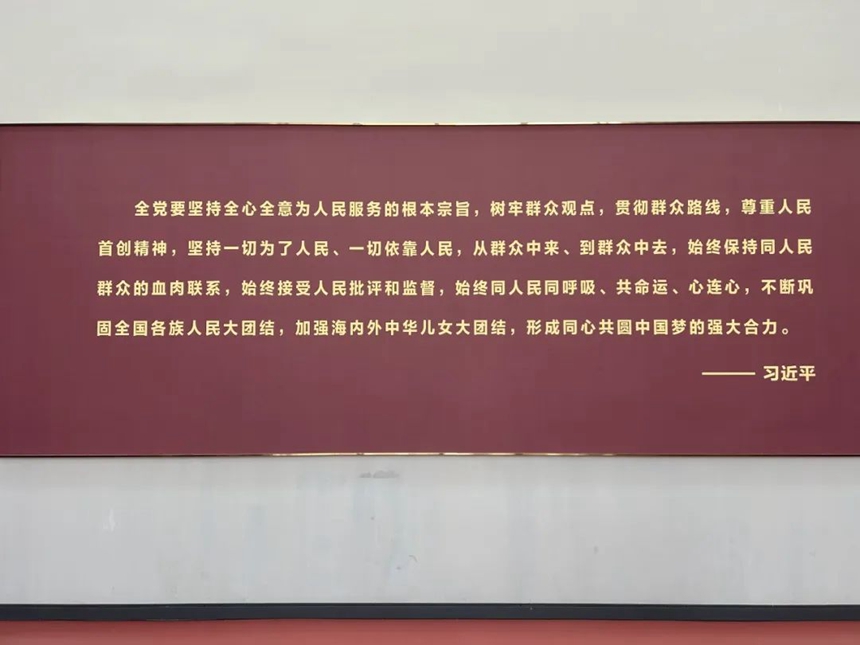 全党要坚持全心全意为人民服务的根本宗旨，树牢群众观点，贯彻群众路线，尊重人民
首创精神，坚持一切为了人民、一切依靠人民，从群众中来、到群众中去，始终保持同人民
群众的血肉联系，始终接受人民批评和监督，始终同人民同呼吸、共命运、心连心，不断巩
固全国各族人民大团结，加强海内外中华儿女大团结，形成同心共圆中国梦的强大合力。
——— 习近平